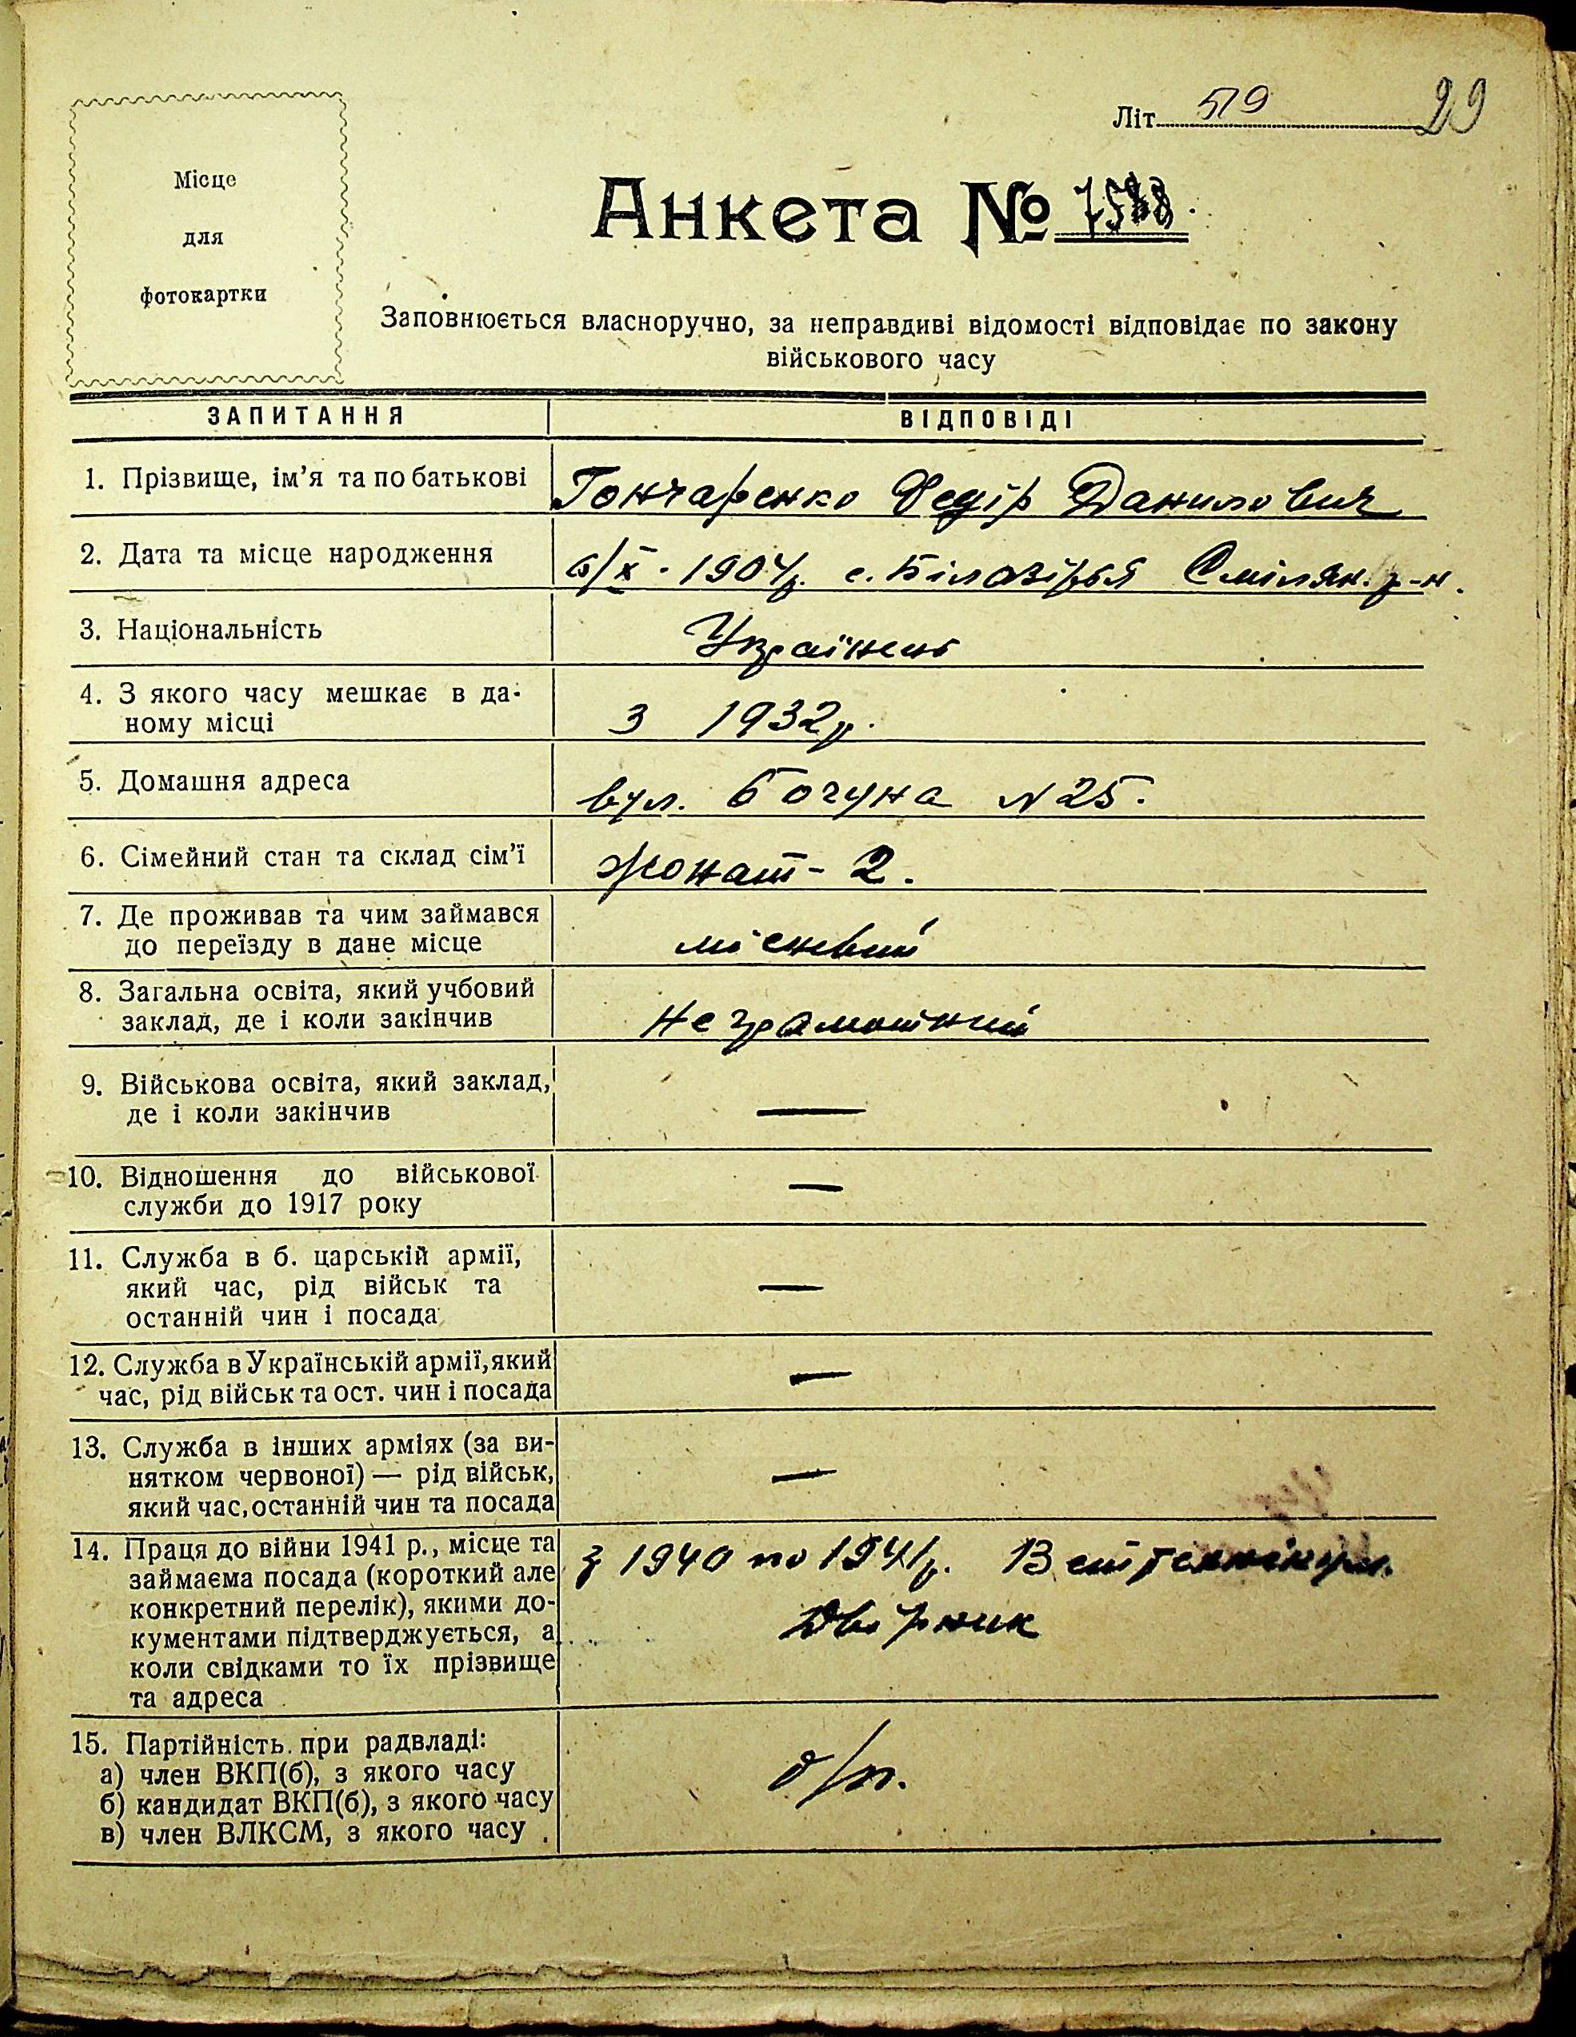 Літ 519 29
Місце
для
фотокартки
Анкета № 7588
Заповнюється власноручно, за неправдиві відомості відповідає по закону
військового часу
ЗАПИТАННЯ ВІДПОВІДІ
1. Прізвище, ім'я та по батькові Гончаренко Федір Данилович
2. Дата та місце народження 6/X - 1904р. с. Білозірья Смілян. р-н.
3. Національність Українець
4. З якого часу мешкає в да-
ному місці З 1932р.
5. Домашня адреса вул. Богуна N 25.
6. Сімейний стан та склад сім'ї жонат - 2.
7. Де проживав та чим займався
до переїзду в дане місце місцевий
8. Загальна освіта, який учбовий
заклад, де і коли закінчив Неграмотний
9. Військова освіта, який заклад,
де і коли закінчив —
10. Відношення до військової
служби до 1917 року —
11. Служба в б. царській армії,
який час, рід військ та
останній чин і посада —
12. Служба в Українській армії, який
час, рід військ та ост. чин і посада —
13. Служба в інших арміях (за ви-
нятком червоної) — рід військ,
який час, останній чин та посада —
14. Праця до війни 1941 р., місце та з 1940 по 1941р.
займаєма посада (короткий але
конкретний перелік), якими до- Двірник
кументами підтверджується, а
коли свідками то їх прізвище
та адреса
15. Партійність при радвладі:
а) член ВКП(б), з якого часу б/п.
б) кандидат ВКП(б), з якого часу
в) член ВЛКСМ, з якого часу